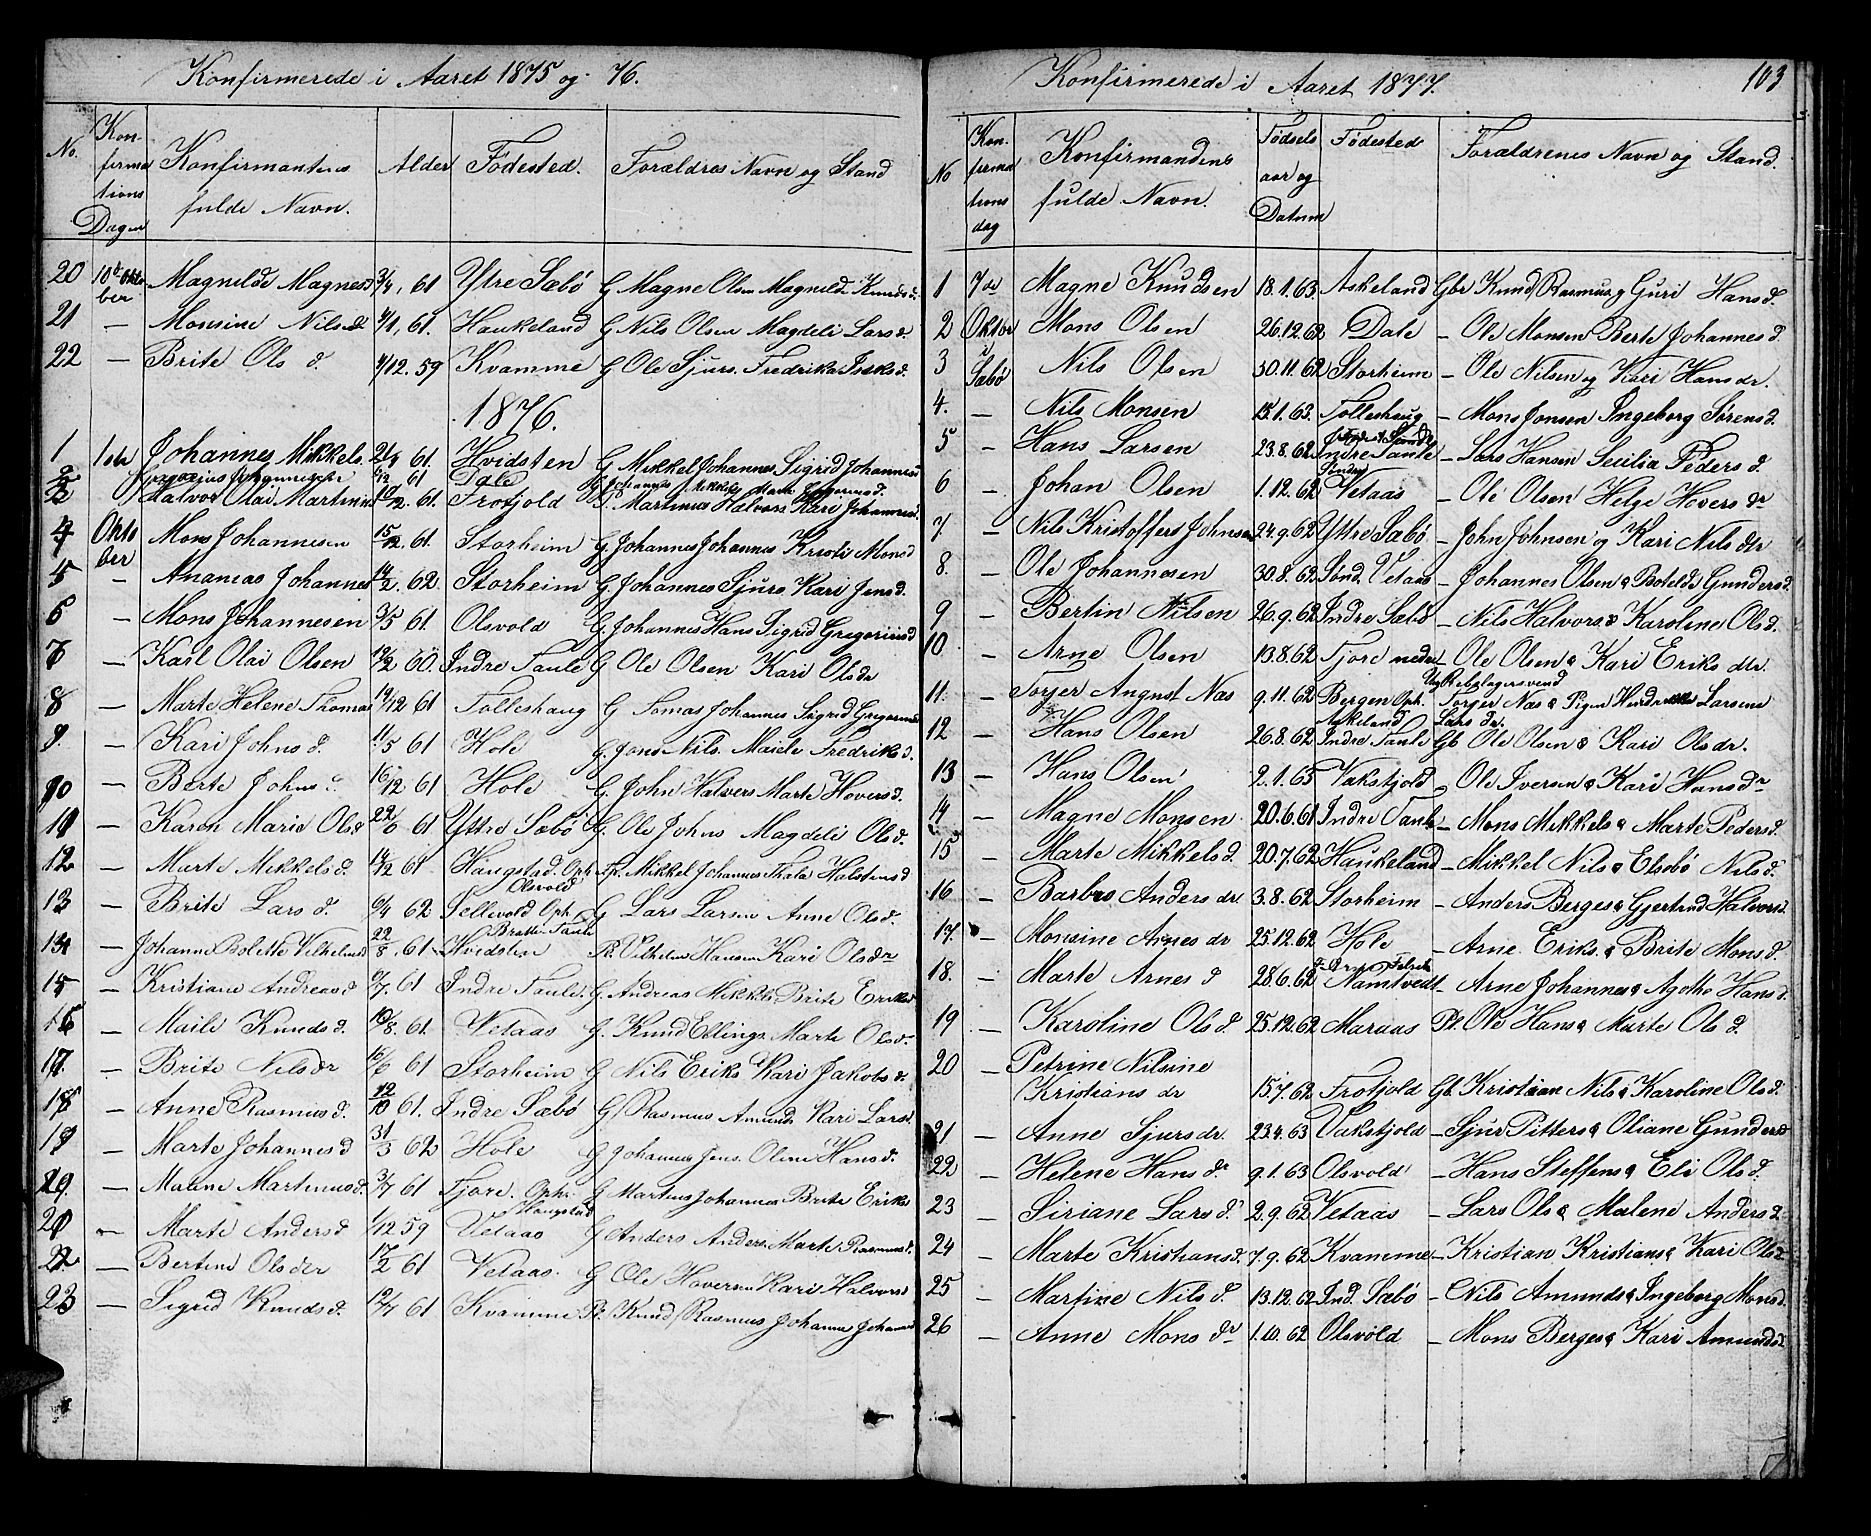 Konfirmerede i Aaret 1875 og 76.
No. Konfirmations Dagen Konfirmantens fulde Navn. Alder Födested. Forældres Navn og Stand
20 10de Oktober Magnilde Magnesd 3/4, 61 Ytre Sæbö G Magne Olsen Magnilde Knudsd.
21 — Monsine Nilsd 4/1, 61. Haukeland G Nils Olsen Magdeli Larsd
22 — Brite Ols d. 4/12. 59 Kvamme G Ole Sjurs. Fredrika Isaksd.
1876.
1 1ste Johannes Mikkels. 61. Hvidsten G Mikkel Johannes. Sigrid Johannesd
2 61 Dale Johannes Mikkels
3 Halvor Olai Martinus 61. Frotjold Martinus Halvors. Kari Johannesd.
4 Oktober Mons Johannesen 15/2. 61. Storheim G. Johannes Johannes Kristi Monsd
5 — Ananias Johannes 14/2. 62. Storheim G. Johannes Sjurs. Kari Jensd.
6 — Mons Johannesen 3/5 61. Olsvold G. Johannes Hans Sigrid Gregoriusd
7 — Karl Olai Olsen 12/2 60. Indre Taule G Ole Olsen Kari Olsdr
8 — Marte Helene Thomas 19/12 61 Tolleshaug G Tomas Johannes Sigrid Gregoriusd
9. — Kari Johns d. 11/5 61 Hole G. Jon Nils. Maiele Fredriksd.
10 — Berte Johns d. 16/12 61 Hole G. John Halvers Marte Hoversd.
11 — Karen Marie Olsd 22/6 61 Ytre Sæbö G. Ole Johns Magdeli Olsd.
12 — Marte Mikkelsd. 14/12 61. Haugstad. Oph. Olsvold Mikkel Johannes Thala Halstensd
13 — Brite Lars d. 6/4 62 Sellevold Oph. G Lars Larsen Anne Olsd.
14 — Johanne Bolette Vilhelmsd 22/8. 61 Hvidsten Pl. Vilhelm Hansen Kari Olsdr
15 — Kristiane Andreasd 61 Indre Taule. G. Andreas Mikkels Brite Eriksd
16 — Maile Knudsd. 19/8. 61. Vetaas G. Knud Ellings. Marte Olsd.
17. — Brite Nilsdr 16/6 61 Storheim G Nils Eriks Kari Jakobsd.
18 — Anne Rasmusd. 12/10 61. Indre Sæbö G Rasmus Amunds Kari Larsd.
19 — Marte Johannesd 31/3 62 Hole G Johannes Jens. Oline Hansd.
20. — Maline Martinusd. 3/7 61 Tjore. Oph. Haugstad G Martinus Johannes Brite Eriks
21 — Marte Andersd 1/12 59 Vetaas G Anders Anders. Marte Rasmusd.
22 — Bertine Olsdr 17/2 61 Vetaas. G Ole Haversen Kari Halvorsd
23 — Sigrid Knudsd. 12/7 61 Kvamme Pl. Knud Rasmus Johanne Johannesd
Konfirmerede i Aaret 1877. 103
No Konfirmations dag Konfirmandens fulde Navn. Födsels aar og Datum Födested Forældrenes Navn og Stand.
1 7de Magne Knudsen 18.1.63. Askeland Gbr Knud Rasmus og Guri Hansd.
2 Oktober Mons Olsen 26.12.62 Dale — Ole Monsen Berte Johannesd.
3 i Sæbö Nils Olsen 30.11.62 Storheim — Ole Nilsen og Kari Hansdr.
4. — Nils Monsen 15.1.63. Tolleshaug — Mons Jonsen Ingeborg Sörensd.
5 — Hans Larsen 23.8.62 Indre Taule — Lars Hansen Secilia Peders d.
6 — Johan Olsen 1.12.62 Söndre Vetaas — Ole Olsen Helge Hovers dr
7. — Nils Kristoffers Johnsen 24.9.62 Yttre Sæbö — John Johnsen og Kari Nilsdtr
8. — Ole Johannesen 30.8.62 Sönd. Vetaas — Johannes Olsen & Botilde Gundersd.
9 — Bertin Nilsen 26.9.62 Indre Sæbö — Nils Halvors & Karoline Olsd.
10 — Arne Olsen 13.8.62 Tjore nedre — Ole Olsen & Kari Eriks dtr.
11. — Torger August Næs 9.11.62 Bergen Oph. Askeland Torger Næs & Pigen Larsine Larsdr.
12 — Hans Olsen 26.8.62 Indre Taule Gb. Ole Olsen & Kari Olsdr.
13 — Hans Olsen 2.1.63 Vakstjold — Ole Iversen & Kari Hansdr
14 — Magne Monsen 20.6.61 Indre Taule — Mons Mikkels & Marte Pedersd.
15 — Marte Mikkelsd. 20.7.62 Haukeland — Mikkel Nils & Elsebö Nilsd.
16 — Barbro Anders dr. 3.8.62 Storheim — Anders Berges & Gjertrud Halvorsd.
17. Monsine Arnes dr 25.12.62 Hole — Arne Eriks. & Brite Monsd.
18. — Marte Arnes d 28.6.62 Namtvedt — Arne Johannes & Agathe Hansd.
19 — Karoline Olsd. 25.12.62 Maraas Pl. Ole Hans & Marte Ols d.
20 — Petrine Nilsine
Kristians dr 15.7.62 Frotjold Gb. Kristian Nils & Karoline Olsd.
21 — Anne Sjursdr. 23.4.63 Vakstjold — Sjur Pitters & Oliane Gundersd
22 — Helene Hans dr 9.1.63 Olsvold — Hans Steffens & Eli Olsd.
23 — Siriane Larsd. 2.9.62 Vetaas — Lars Ols & Malene Andersd
24 — Marte Kristiansd. 7.9.62 Kvamme — Kristian Kristians & Kari Olsd
25 — Martine Nilsd. 13.12.62 Ind. Sæbö — Nils Amunds & Ingeborg Monsd.
26 — Anne Mons dr 1.10.62 Olsvold — Mons Berges & Kari Amundsd